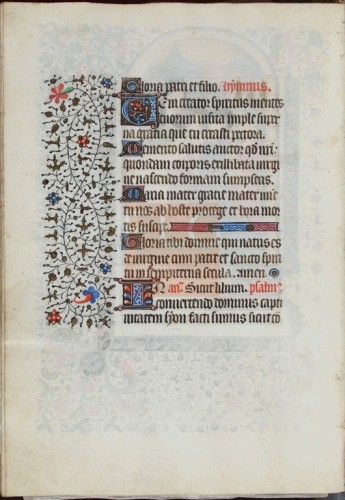 Gloria patri et filio. hymnus.
Veni creator spiritus mentes
tuorum visita imple super
na gratia que tu creasti pectora.
Memento salutis auctor qd nri
quondam corporis ex illibata virgi
ne nascendo formam sumpseris.
Maria mater gracie mater mi
tu nos ab hoste protege et hora mor
tis suscipe
Gloria tibi domine qui natus es
de virgine cum patre et sancto spiri
tu in sempiterna secula. amen.
an. Sicut lilium. psalm
In convertendo dominus capti
vitatem syon facti sumus sicut co